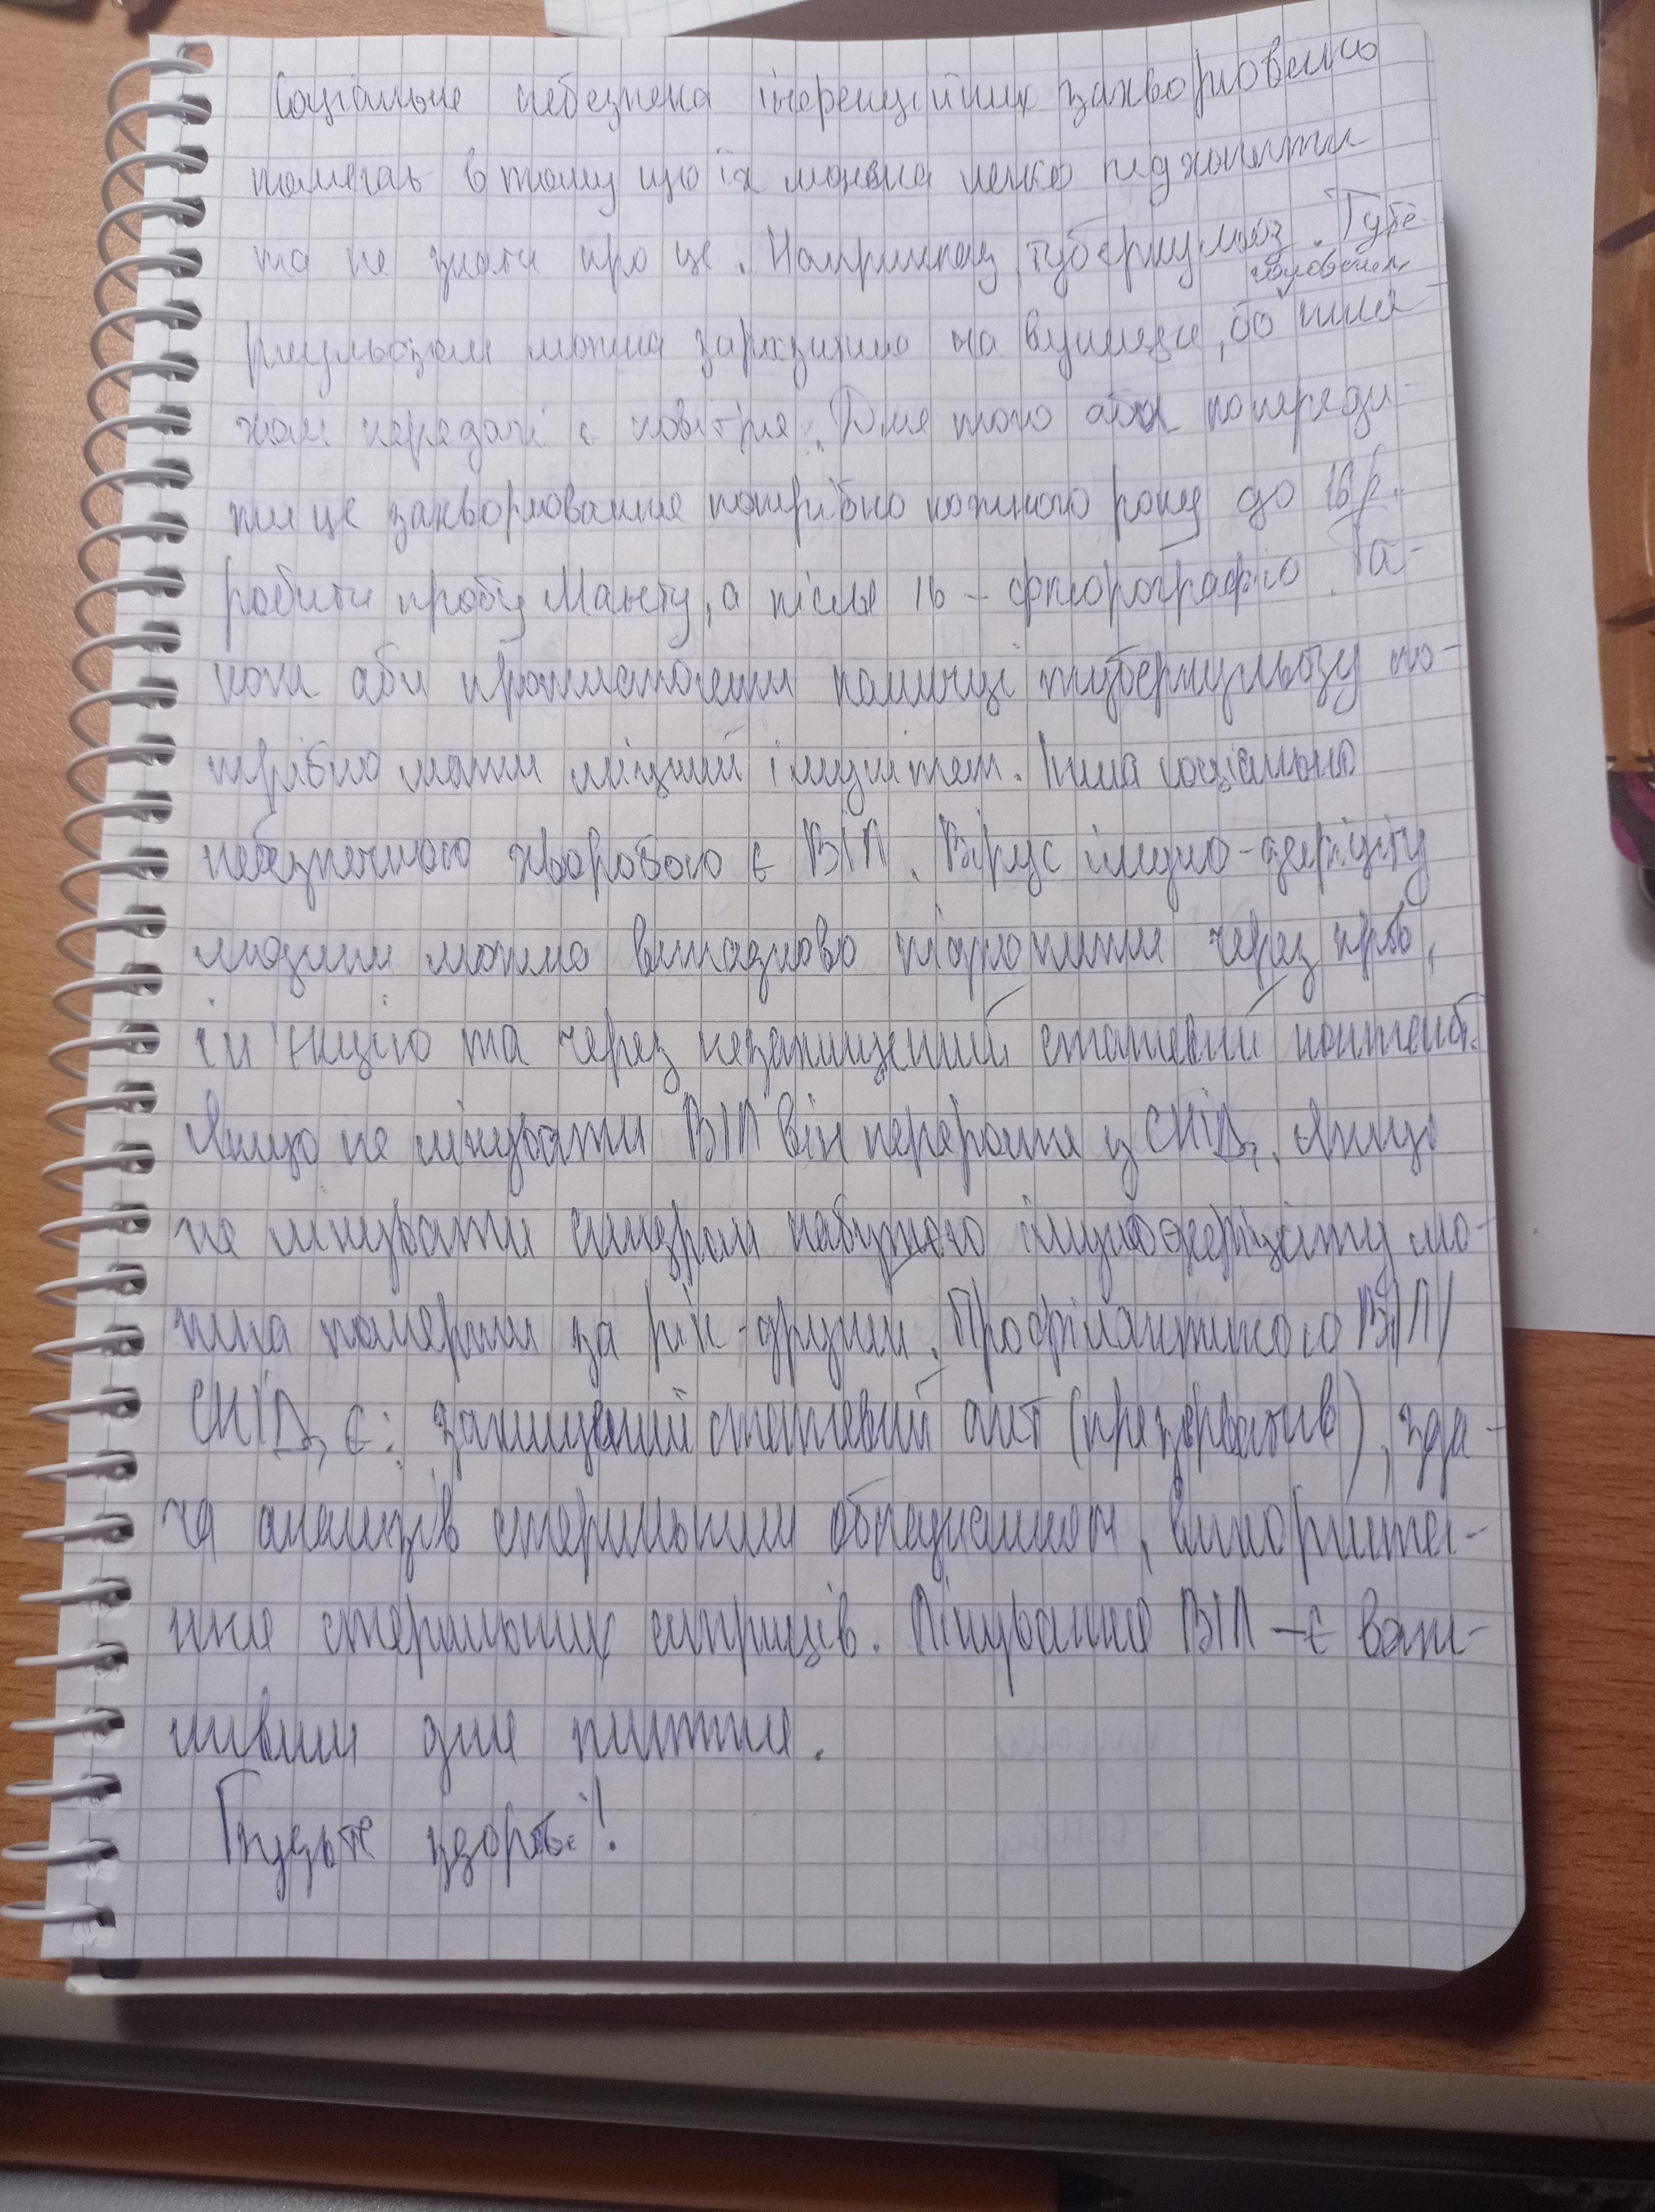 Соціальне небезпека інфекційних захворювань
полягає в тому що їх можна легко підхопити
та не знати про це. Наприклад, туберкульоз. Тубе-
ркульозом можна заразитися на вулиці, бо головним шля-
хом передачі є повітря. Для того аби попереди-
ти це захворювання потрібно кожного року до 16 р.
робити пробу Манту, а після 16 - флюорографію. Та-
кож аби протистояти паличці туберкульозу по-
трібно мати міцний імунітет. Інша соціально
небезпечною хворобою є ВІЛ. Вірус імуно-дефіциту
людини можна випадково підхопити через кров,
ін'єкцію та через незахищений статевий контакт.
Якщо не лікувати ВІЛ він переросте у СНІД. Якщо
не лікувати синдром набутого імунодефіциту мо-
жна померти за рік-другий. Профілактикою ВІЛ/
СНІД, є: захищений статевий акт (презерватив), зда-
ча аналізів стерильним обладнанням, використа-
ння стерильних шприців. Лікування ВІЛ - є важ-
ливим для життя.
Будьте здорові!